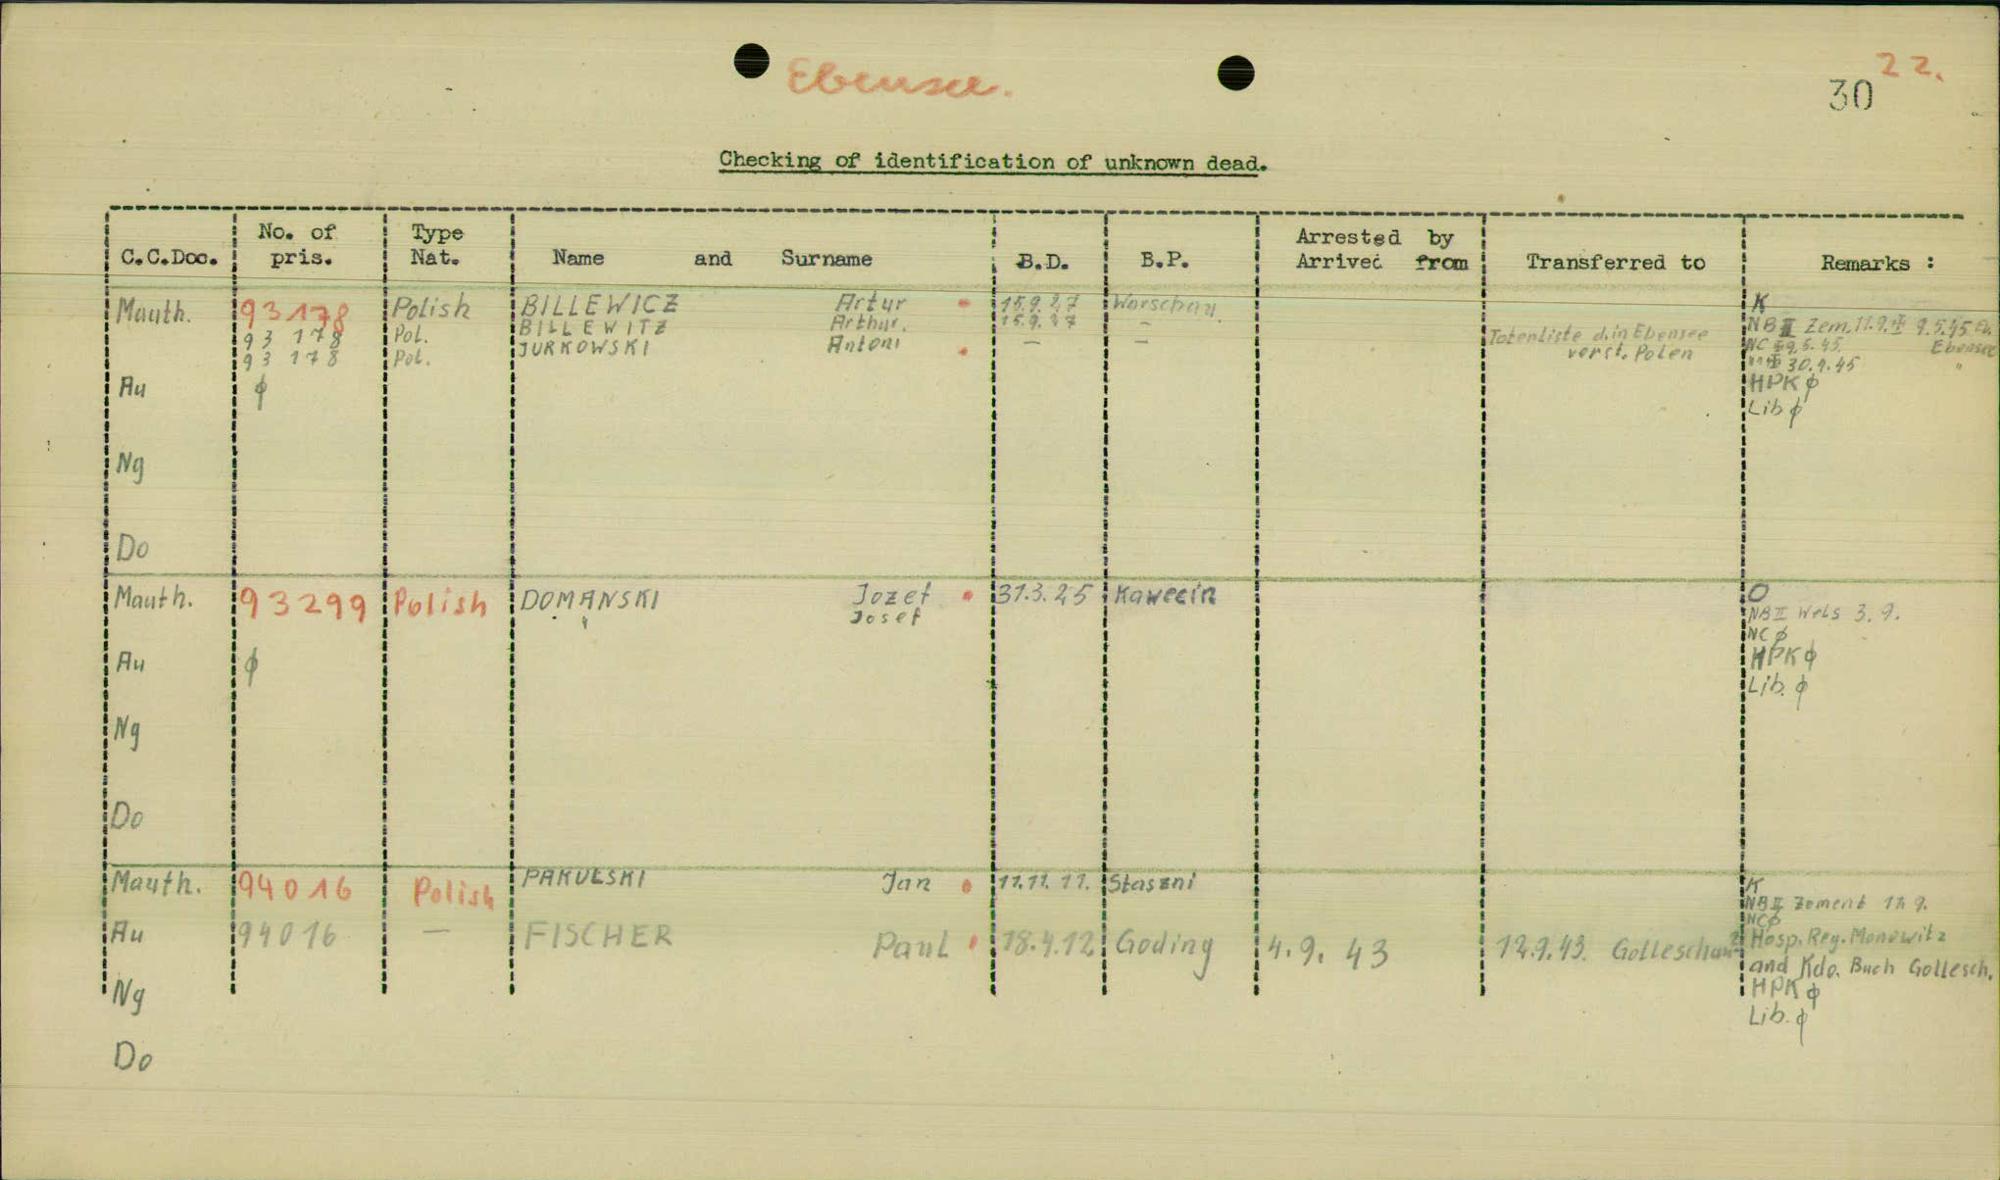 Ebensee.
22.
30
Checking of identification of unknown dead.
C.C.Doc. No. of pris. Type Nat. Name and Surname B.D. B.P. Arrested by Arrived from Transferred to Remarks :
Mauth. 93178 Polish BILLEWICZ Artur 15.9.27 Warschau K
93 178 Pol. BILLEWITZ Arthur. 15.9.27 – NB II Zem. 11.9. 9.5.45 Eb.
93 178 Pol. JURKOWSKI Antoni – – Totenliste d. in Ebensee verst. Polen NC 9.5.45 Ebensee
30.4.45 "
Au ϕ HPK ϕ
Lib ϕ
Ng
Do
Mauth. 93299 Polish DOMANSKI Jozef 31.3.25 Kawecin O
" Josef NB II Wels 3.9.
NC ϕ
Au ϕ HPK ϕ
Lib. ϕ
Ng
Do
Mauth. 94016 Polish PAKULSKI Jan 11.11.11. Staszni K
NB II Zement 17.9.
NC ϕ
Au 94016 – FISCHER Paul 18.4.12 Goding 4.9.43 12.9.43. Golleschau Hosp. Reg. Monowitz
and Kdo. Buch Gollesch.
Ng HPK ϕ
Lib. ϕ
Do